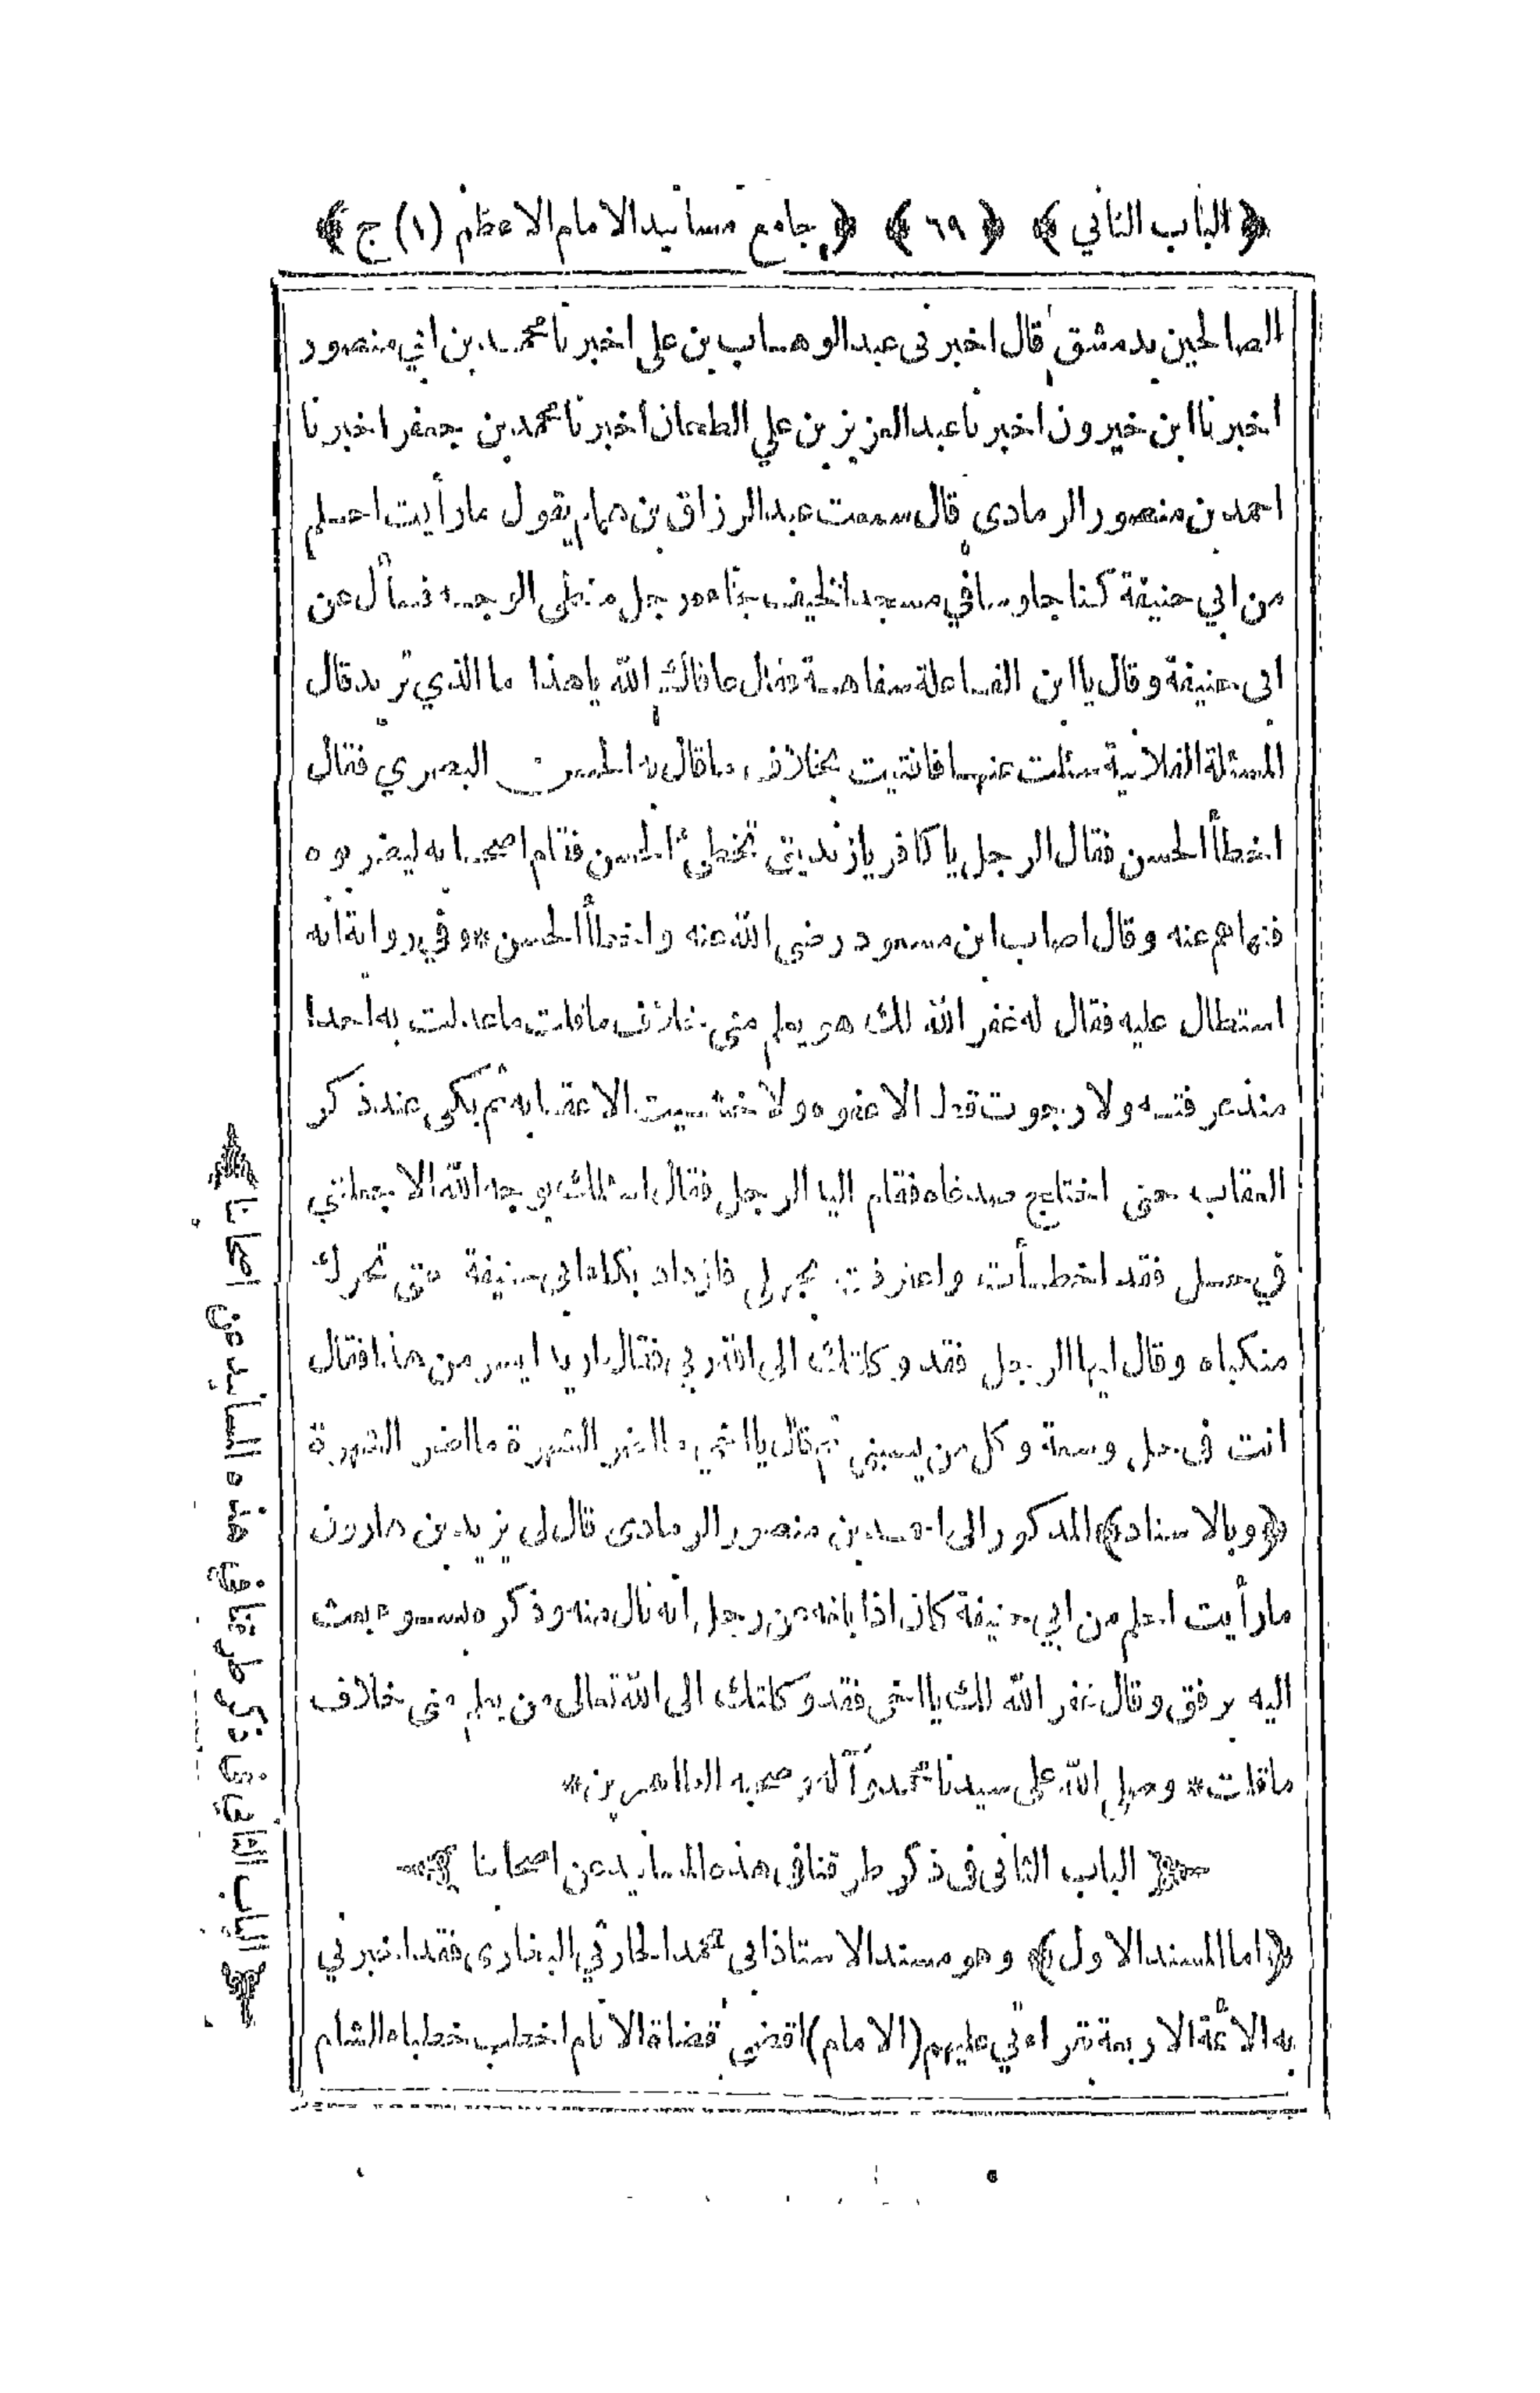 ﴿ الباب الثاني ﴾ ﴿ ٦٩ ﴾ ﴿ جامع مسانيد الامام الاعظم (١) ج ﴾
الصالحين بدمشق قال اخبرنى عبد الوهاب بن على اخبرنا محمد بن ابي منصور
اخبرنا ابن خيرون اخبرنا عبد العزيز بن علي الطحان اخبرنا محمد بن جعفر اخبرنا
احمد بن منصور الرمادى قال سمعت عبد الرزاق بن همام يقول ما رأيت احلم
من ابي حنيفة كنا جلوسا في مسجد الخيف فجاءه رجل من على الوجه فسأل عن
ابى حنيفة وقال يا ابن الفاعلة سفاهة فقال عافاك الله يا هذا ما الذي تريد قال
المسئلة الفلانية سئلت عنها فافتيت بخلاف ما قال به الحسن البصري فقال
اخطأ الحسن فقال الرجل يا كافر يا زنديق تخطئ الحسن فقام اصحابه ليضربوه
فنهاهم عنه وقال اصاب ابن مسعود رضى الله عنه واخطأ الحسن * وفي رواية انه
استطال عليه فقال له غفر الله لك هو يعلم منى خلاف ما قلت ما عدلت به احدا
منذ عرفته ولا رجوت قط الا عفوه ولا خشيت الا عقابه ثم بكى عند ذكر
العقاب حتى اختلج صدغاه فقام اليه الرجل فقال اسئلك بوجه الله الا جعلتني
في حل فقد اخطأت واعترفت بجهلى فازداد بكاء ابي حنيفة حتى تحرك
منكباه وقال ايها الرجل فقد وكلتك الى الله ربي فقال اريد ايسر من هذا فقال
انت فى حل وسعة وكل من يسبنى ثم قال يا اخي ما اضر الشهرة ما اضر الشهرة
﴿ وبالاسناد ﴾ المذكور الى احمد بن منصور الرمادى قال لى يزيد بن هارون
ما رأيت احلم من ابي حنيفة كان اذا بلغه عن رجل انه نال منه وذكره بسوء بعث
اليه برفق وقال غفر الله لك يا اخى فقد وكلتك الى الله تعالى من يعلم منى خلاف
ما قلت * وصلى الله على سيدنا محمد وآله وصحبه الطاهرين *
الباب الثانى فى ذكر طرقنا فى هذه المسانيد عن اصحابنا
﴿ اما المسند الاول ﴾ وهو مسند الاستاذ ابى محمد الحارثي البخارى فقد اخبرني
به الائمة الاربعة بقراءتي عليهم (الامام) اقضى قضاة الانام اخطب خطباء الشام
الباب الثاني فى ذكر طرقنا في هذه المسانيد عن اصحابنا